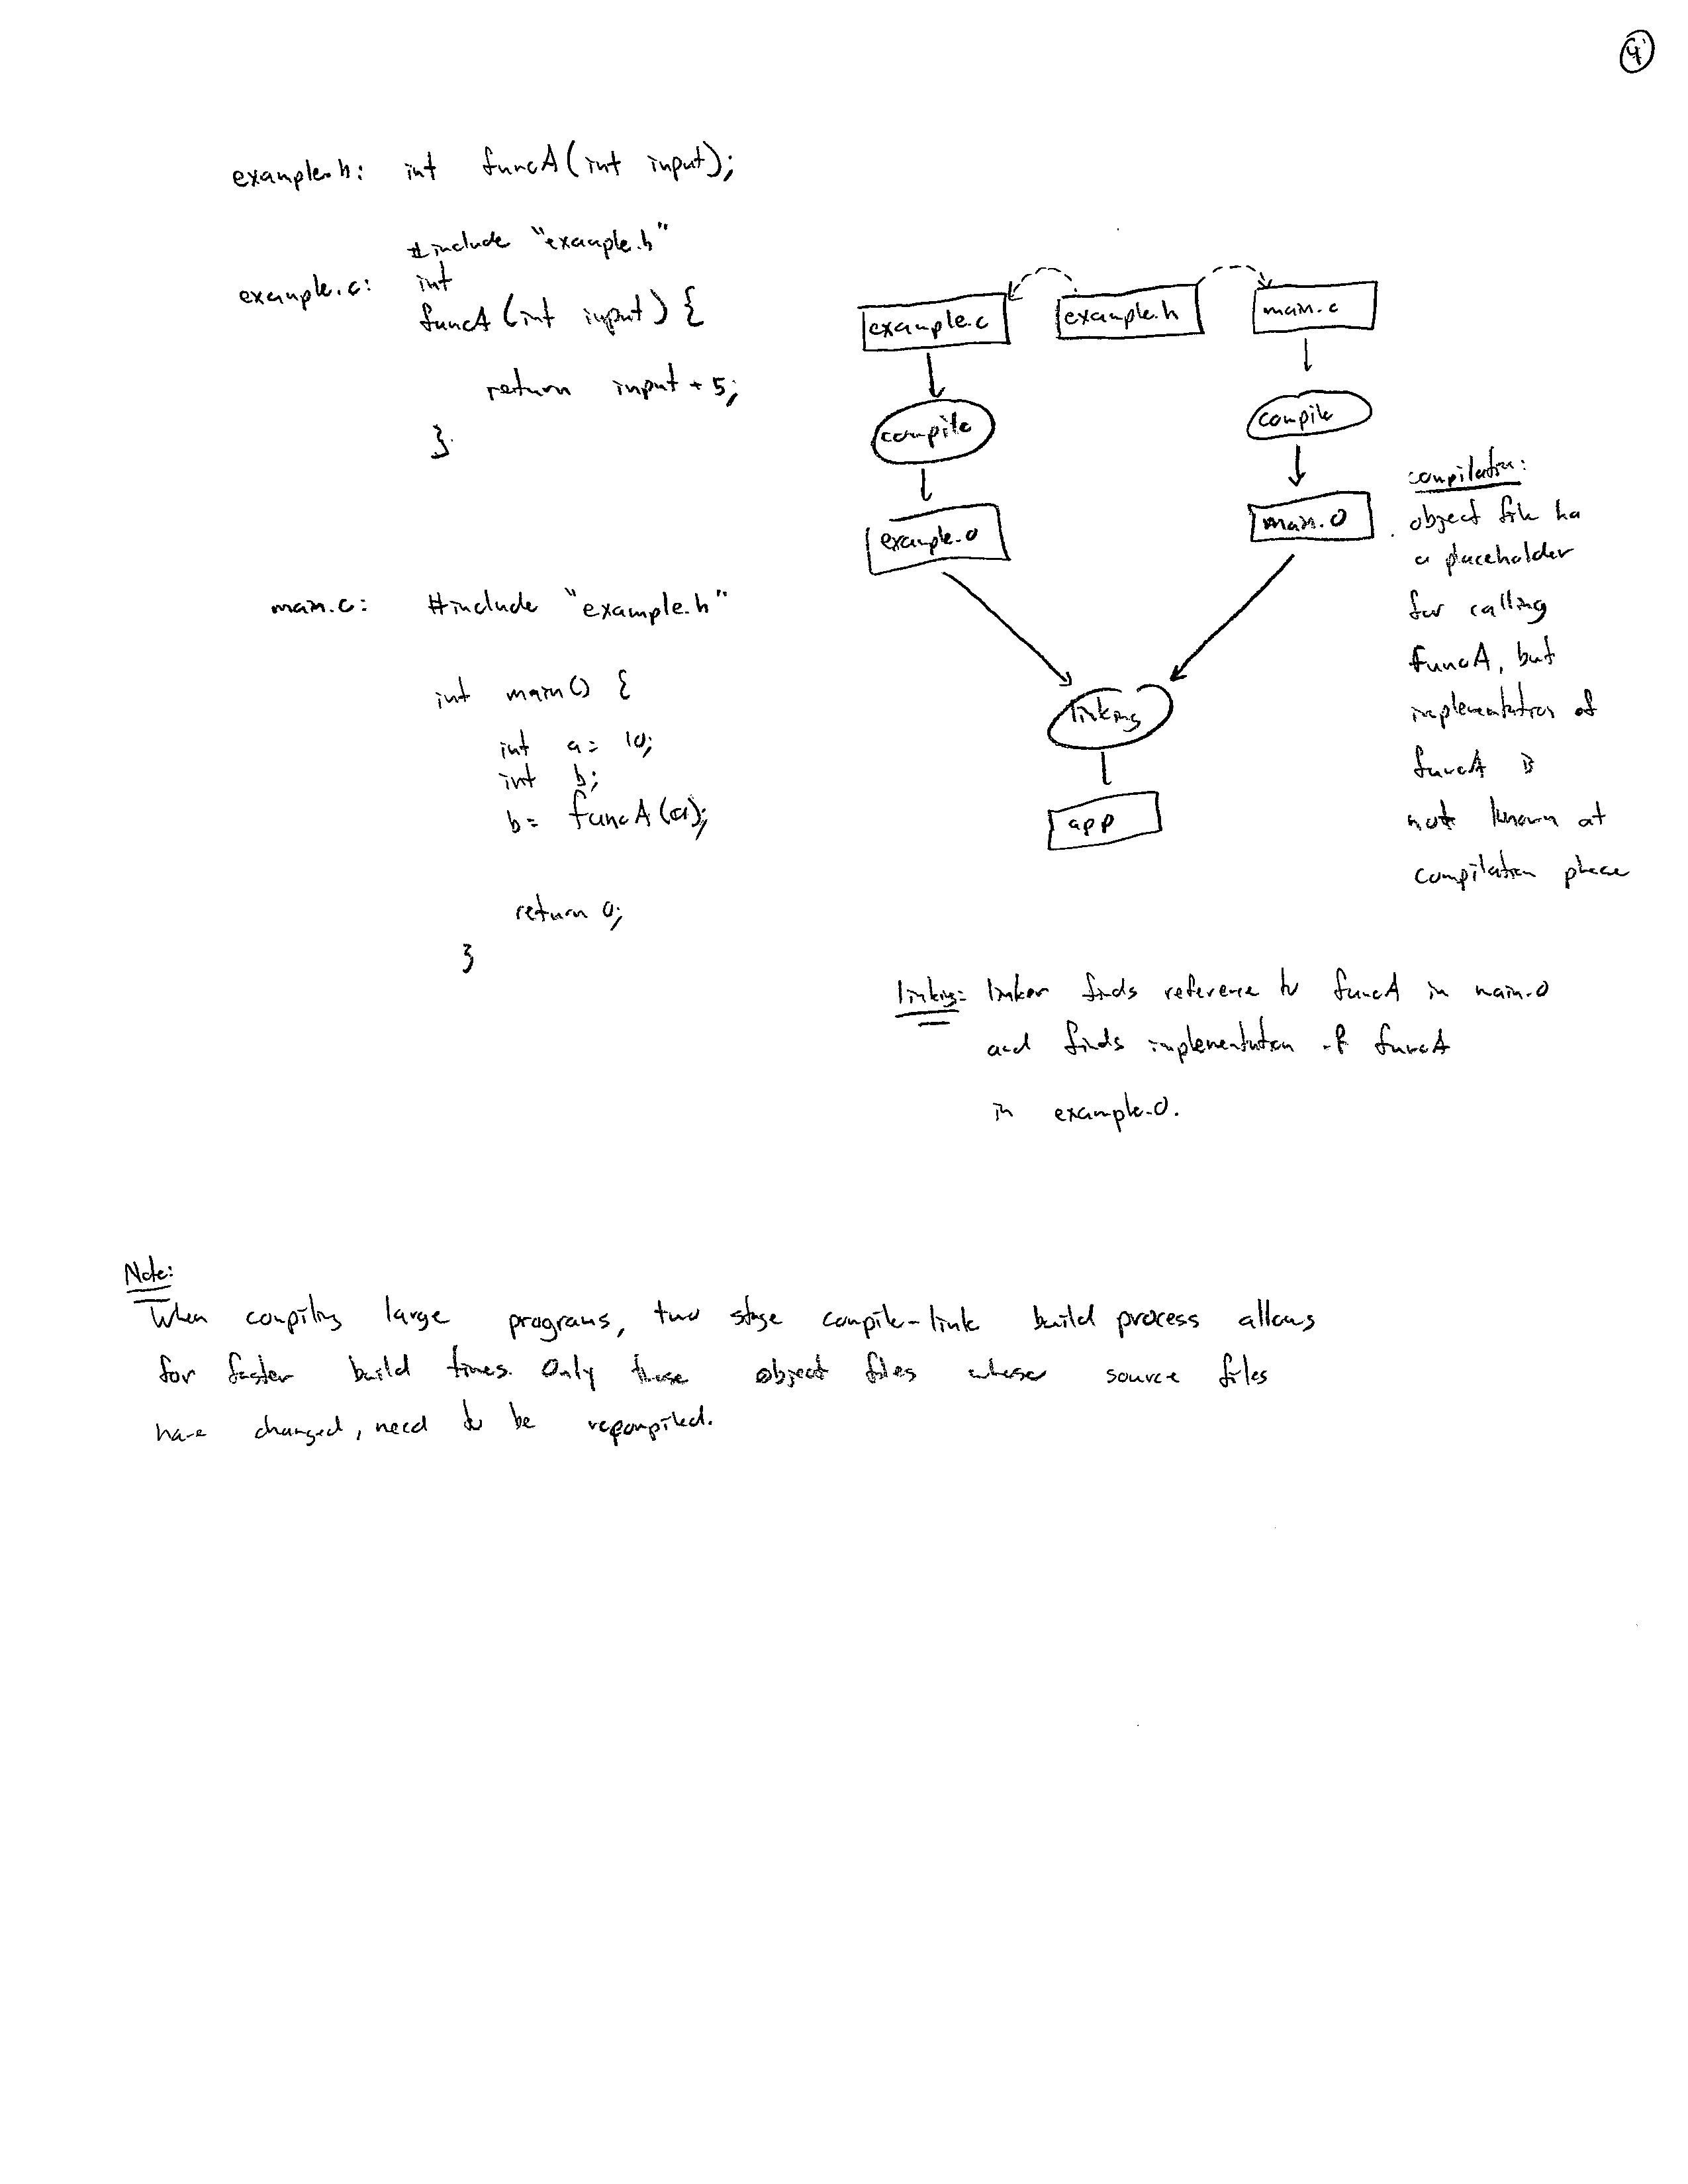 4
example.h: int funcA(int input);
#include "example.h"
example.c: int
funcA(int input) {
return input + 5;
}
main.c: #include "example.h"
int main() {
int a = 10;
int b;
b = funcA(a);
return 0;
}
example.c example.h main.c
compile compile
example.o main.o
linking
app
compilation:
object file ha
a placeholder
for calling
funcA, but
implementation of
funcA is
not known at
compilation phase
linking: linker finds reference to funcA in main.o
and finds implementation of funcA
in example.o.
Note:
When compiling large programs, two stage compile-link build process allows
for faster build times. Only those object files whose source files
have changed, need to be recompiled.